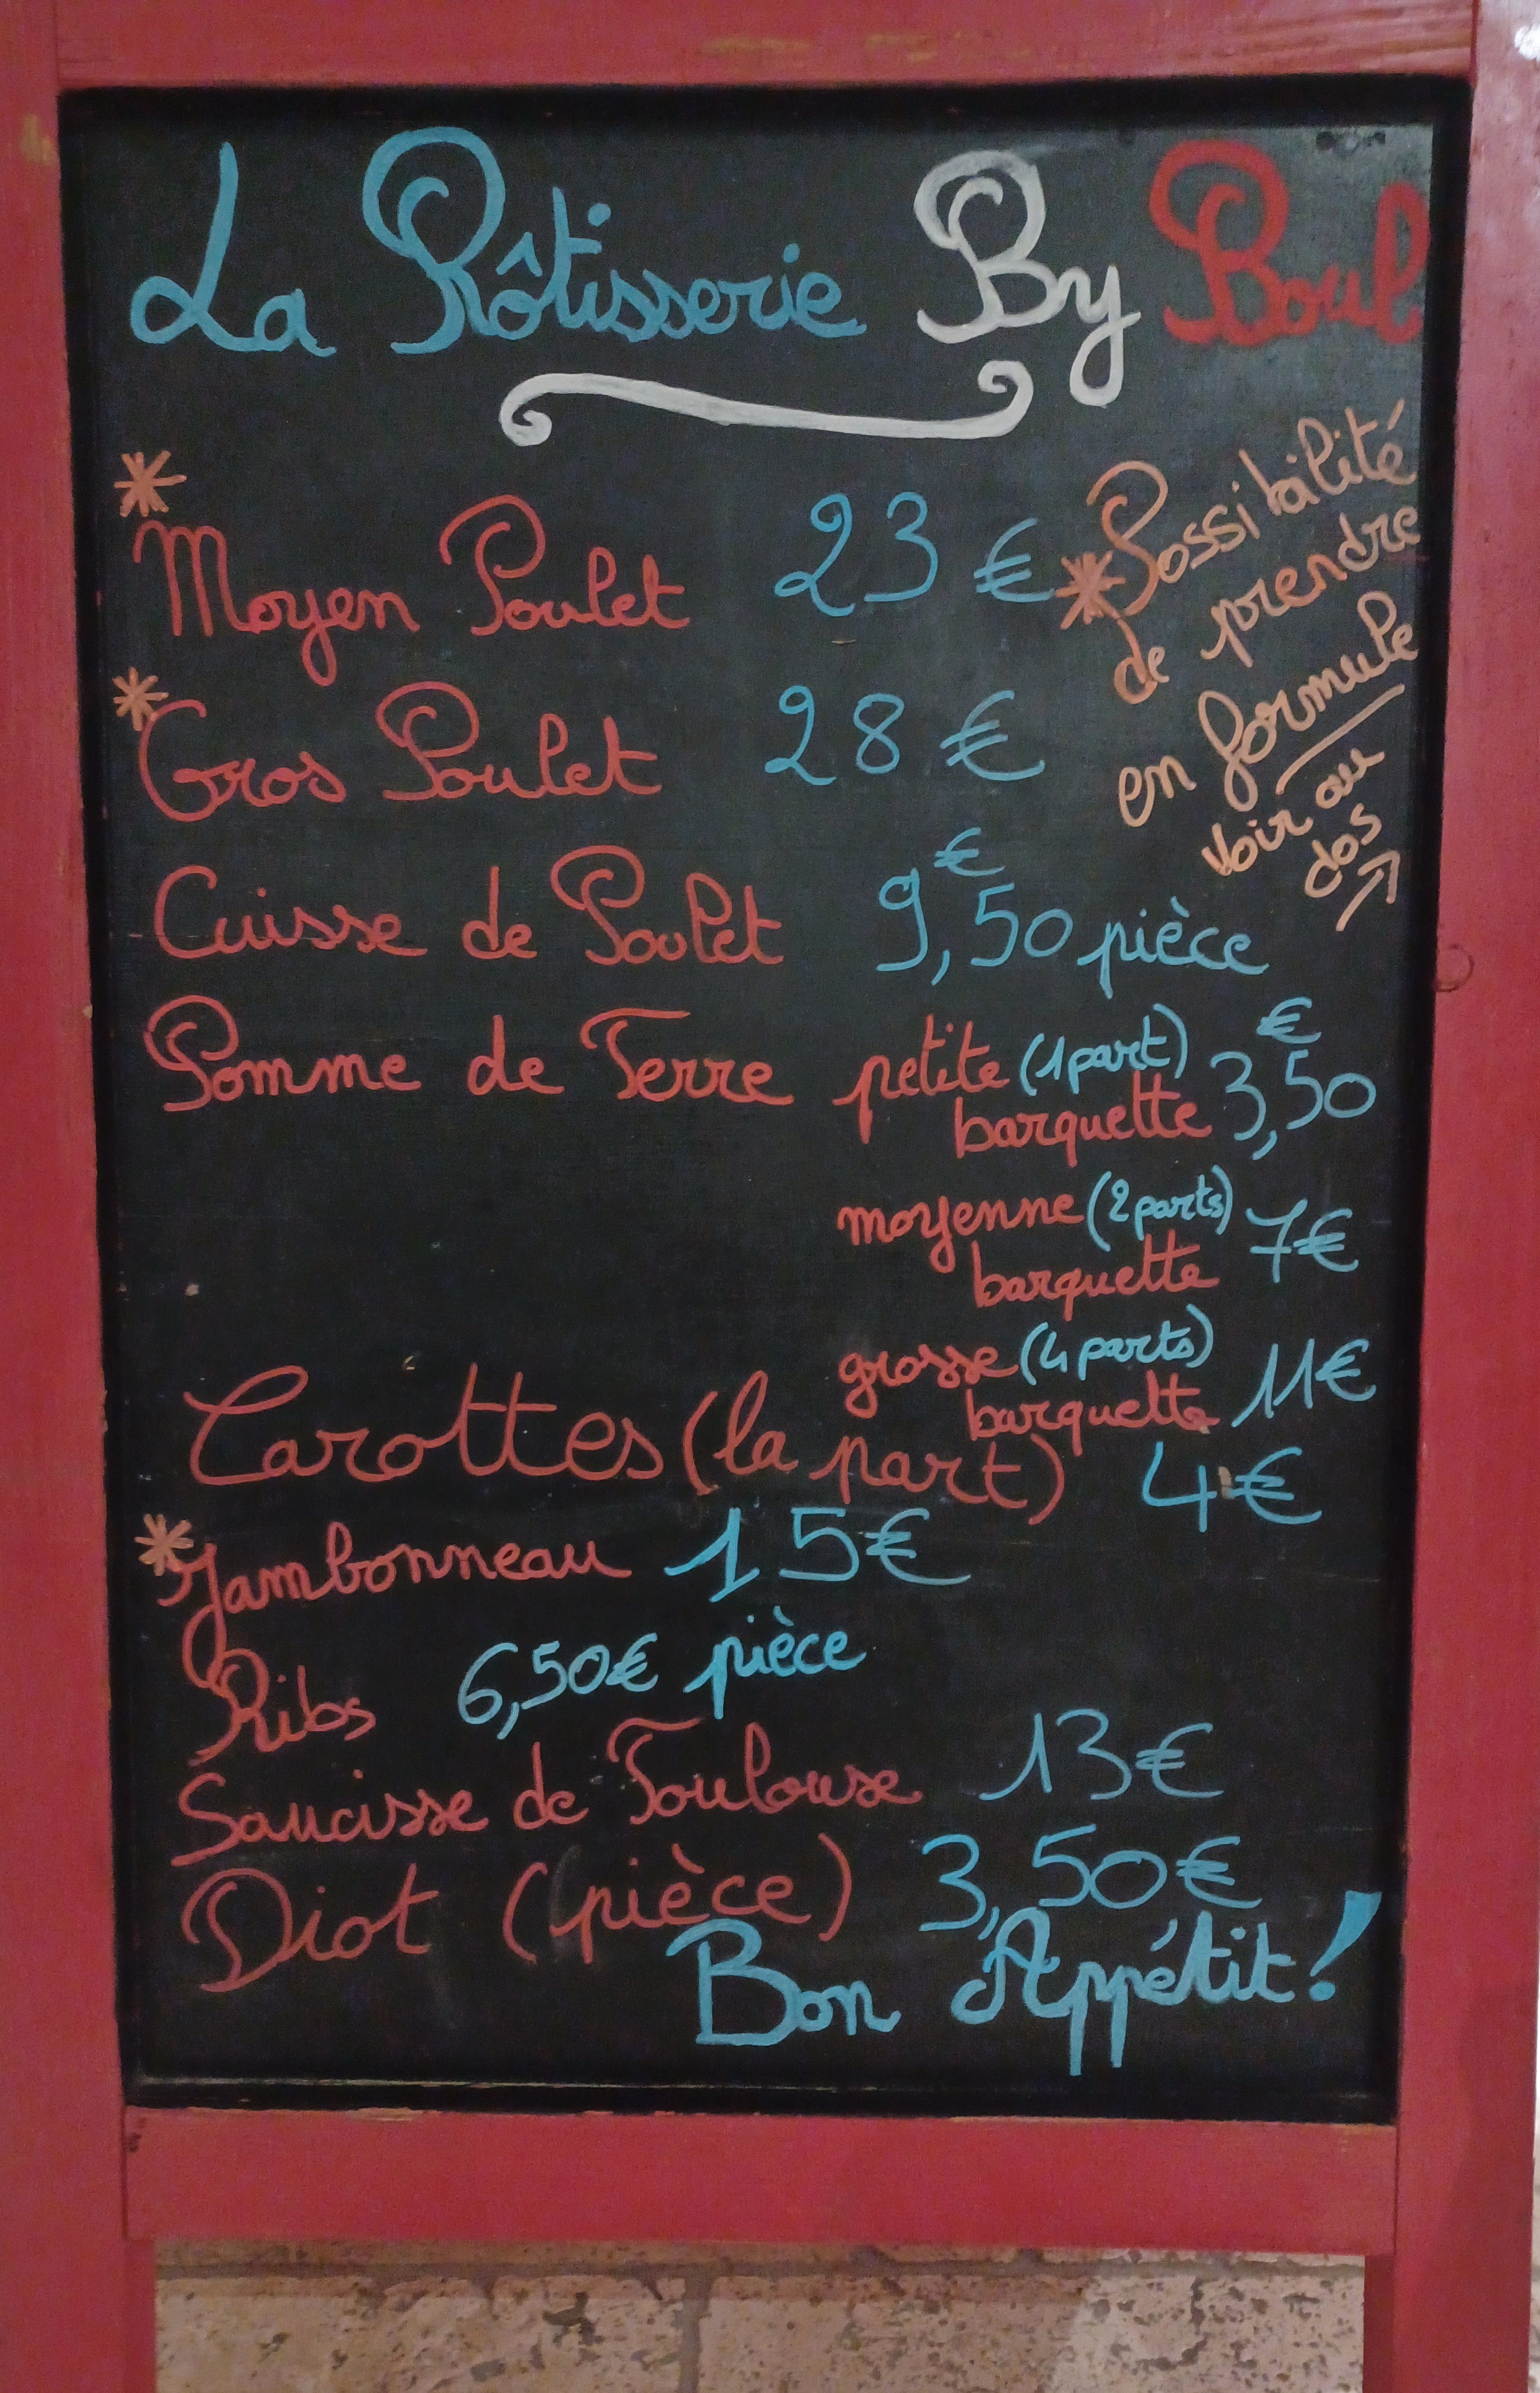 La Rôtisserie By Boul
* Moyen Poulet 23 €
* Gros Poulet 28 €
* Possibilité
de prendre
en formule
voir au
dos
Cuisse de Poulet 9,50 € pièce
Pomme de Terre petite (1 part)
barquette 3,50 €
moyenne (2 parts)
barquette 7€
grosse (4 parts)
barquette 11€
Carottes (la part) 4€
* Jambonneau 15€
Ribs 6,50€ pièce
Saucisse de Toulouse 13€
Diot (pièce) 3,50€
Bon Appétit!